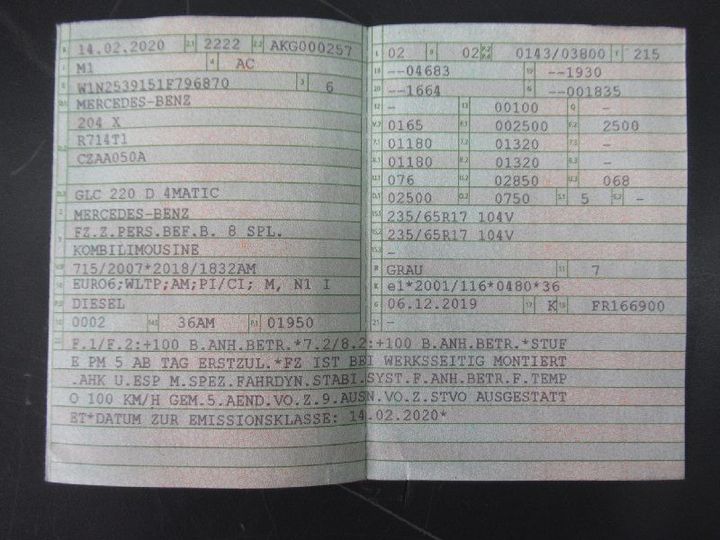 14.02.2020 2.1 2222 2.2 AKG000257
M1 4 AC
W1N2539151F796870 3 6
MERCEDES-BENZ
204 X
R714T1
CZAA050A
GLC 220 D 4MATIC
MERCEDES-BENZ
FZ.Z.PERS.BEF.B. 8 SPL.
KOMBILIMOUSINE
715/2007*2018/1832AM
EURO6;WLTP;AM;PI/CI; M, N1 I
DIESEL
0002 36AM 01950
02 02 0143/03800 T 215
--04683 --1930
--1664 --001835
- 00100 Q -
0165 F.1 002500 F.2 2500
01180 01320 -
01180 01320 -
076 02850 068
02500 0750 S.1 5 S.2 -
235/65R17 104V
235/65R17 104V
-
R GRAU 11 7
K e1*2001/116*0480*36
06.12.2019 17 K FR166900
21 -
F.1/F.2:+100 B.ANH.BETR.*7.2/8.2:+100 B.ANH.BETR.*STUF
E PM 5 AB TAG ERSTZUL.*FZ IST BEI WERKSSEITIG MONTIERT
.AHK U.ESP M.SPEZ.FAHRDYN.STABI.SYST.F.ANH.BETR.F.TEMP
O 100 KM/H GEM.5.AEND.VO.Z.9.AUSN.VO.Z.STVO AUSGESTATT
ET*DATUM ZUR EMISSIONSKLASSE: 14.02.2020*